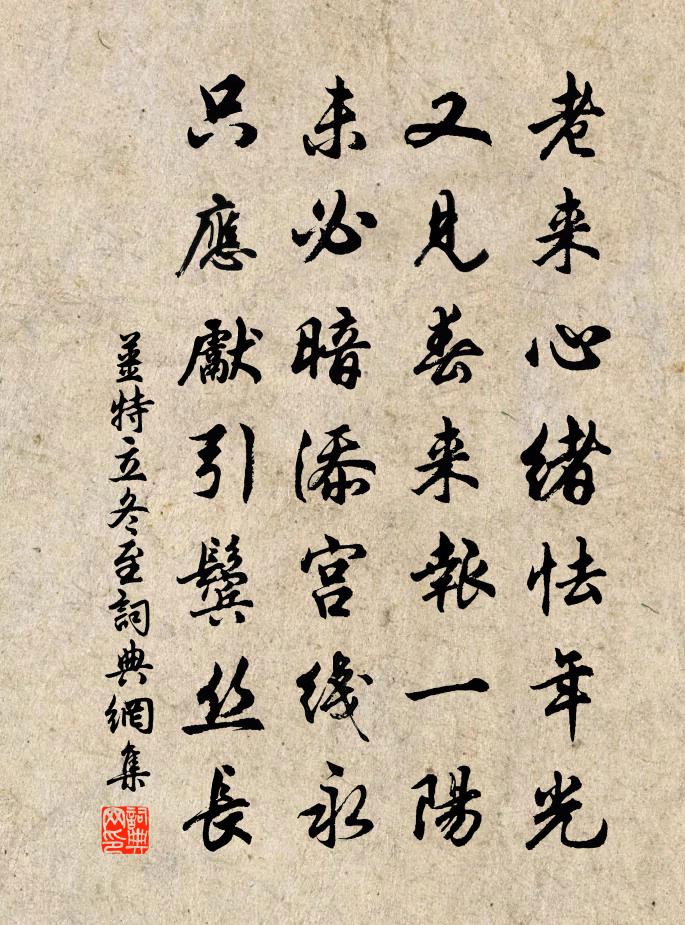 老来心緒怯年光
又見春来報一陽
未必暗添宫綫永
只應獻引鬓丝長
姜特立冬至詞典網集
詞典网印